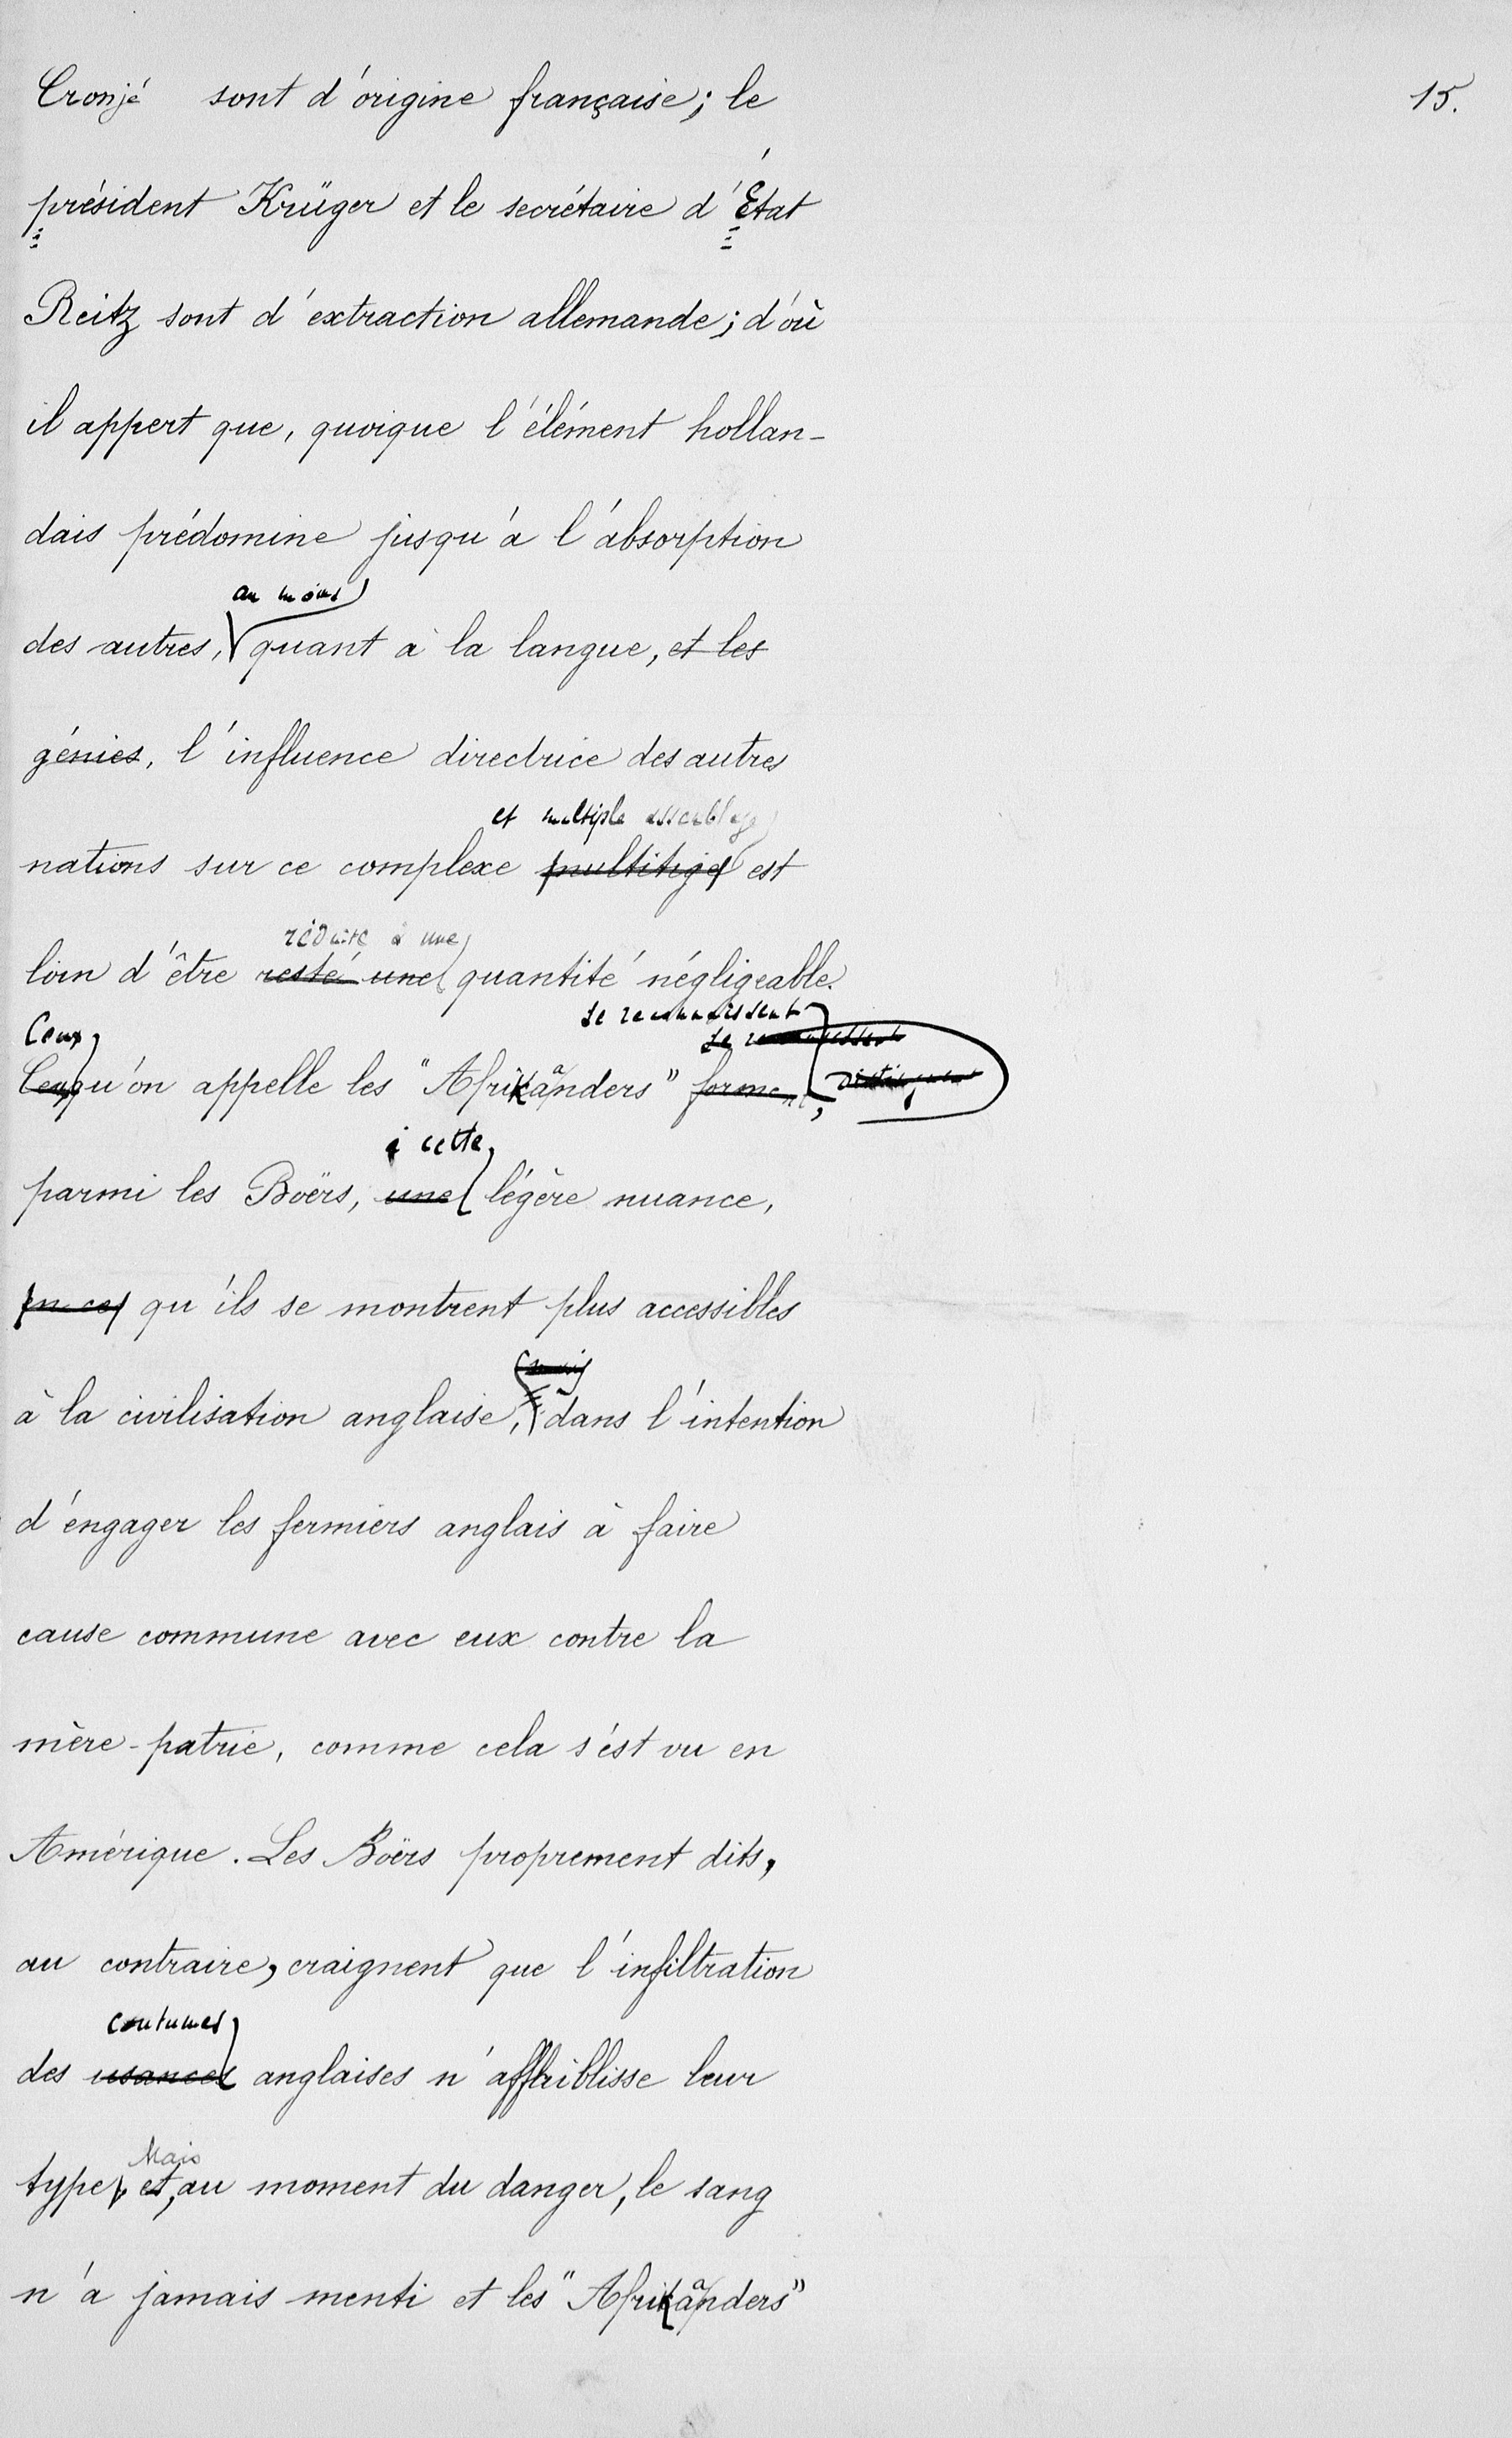 Cronjé sont d'origine française; le
15.
président Krüger et le secrétaire d'État
Reitz sont d'extraction allemande; d'où
il appert que, quoique l'élément hollan-
dais prédomine jusqu'à l'absorption
au moins
des autres, quant à la langue, et les
génies, l'influence directrice des autres
et multiple assemblage
nations sur ce complexe multitige est
réduite à une
loin d'être resté une quantité négligeable.
se reconnaissent
Ceux
se reconnaissent
Ceux qu'on appelle les "Afrikanders" forment,
distinguent
à cette
parmi les Boërs, une légère nuance,
en ce qu'ils se montrent plus accessibles
mais
à la civilisation anglaise, dans l'intention
d'engager les fermiers anglais à faire
cause commune avec eux contre la
mère-patrie, comme cela s'est vu en
Amérique. Les Boërs proprement dits,
au contraire, craignent que l'infiltration
coutumes
des usances anglaises n'affaiblisse leur
Mais
type, et, au moment du danger, le sang
n'a jamais menti et les "Afrikanders"